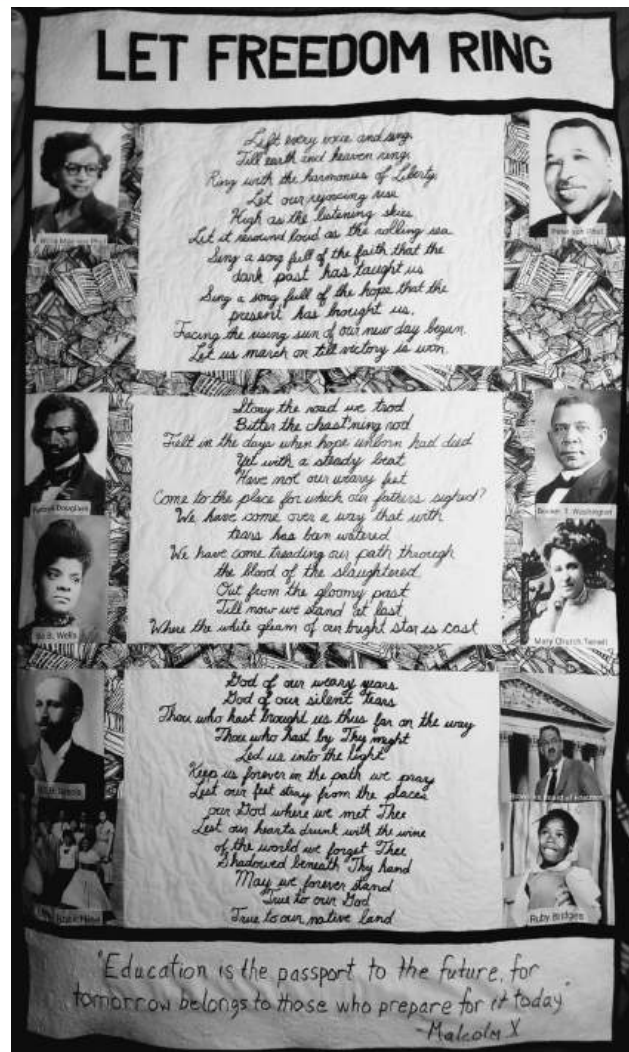 LET FREEDOM RING
Lift every voice and sing,
Till earth and heaven ring,
Ring with the harmonies of Liberty
Let our rejoicing rise
High as the listening skies
Let it resound loud as the rolling sea
Sing a song full of the faith that the
dark past has taught us
Sing a song full of the hope that the
present has brought us,
Facing the rising sun of our new day begun
Let us march on till victory is won.
Willa Mae van Phul
Peter van Phul
Stony the road we trod
Bitter the chast'ning rod
Felt in the days when hope unborn had died
Yet with a steady beat
Have not our weary feet
Come to the place for which our fathers sighed?
We have come over a way that with
tears has been watered
We have come treading our path through
the blood of the slaughtered
Out from the gloomy past
Till now we stand at last
Where the white gleam of our bright star is cast
Douglass
Booker T. Washington
Ida B. Wells
Mary Church Terrell
God of our weary years
God of our silent tears
Thou who hast brought us thus far on the way
Thou who hast by Thy might
Led us into the light
Keep us forever in the path we pray
Lest our feet stray from the places
our God where we met Thee
Lest our hearts drunk with the wine
of the world we forget Thee
Shadowed beneath Thy hand
May we forever stand
True to our God
True to our native land
Board of Education
Ruby Bridges
"Education is the passport to the future, for
tomorrow belongs to those who prepare for it today"
-Malcolm X